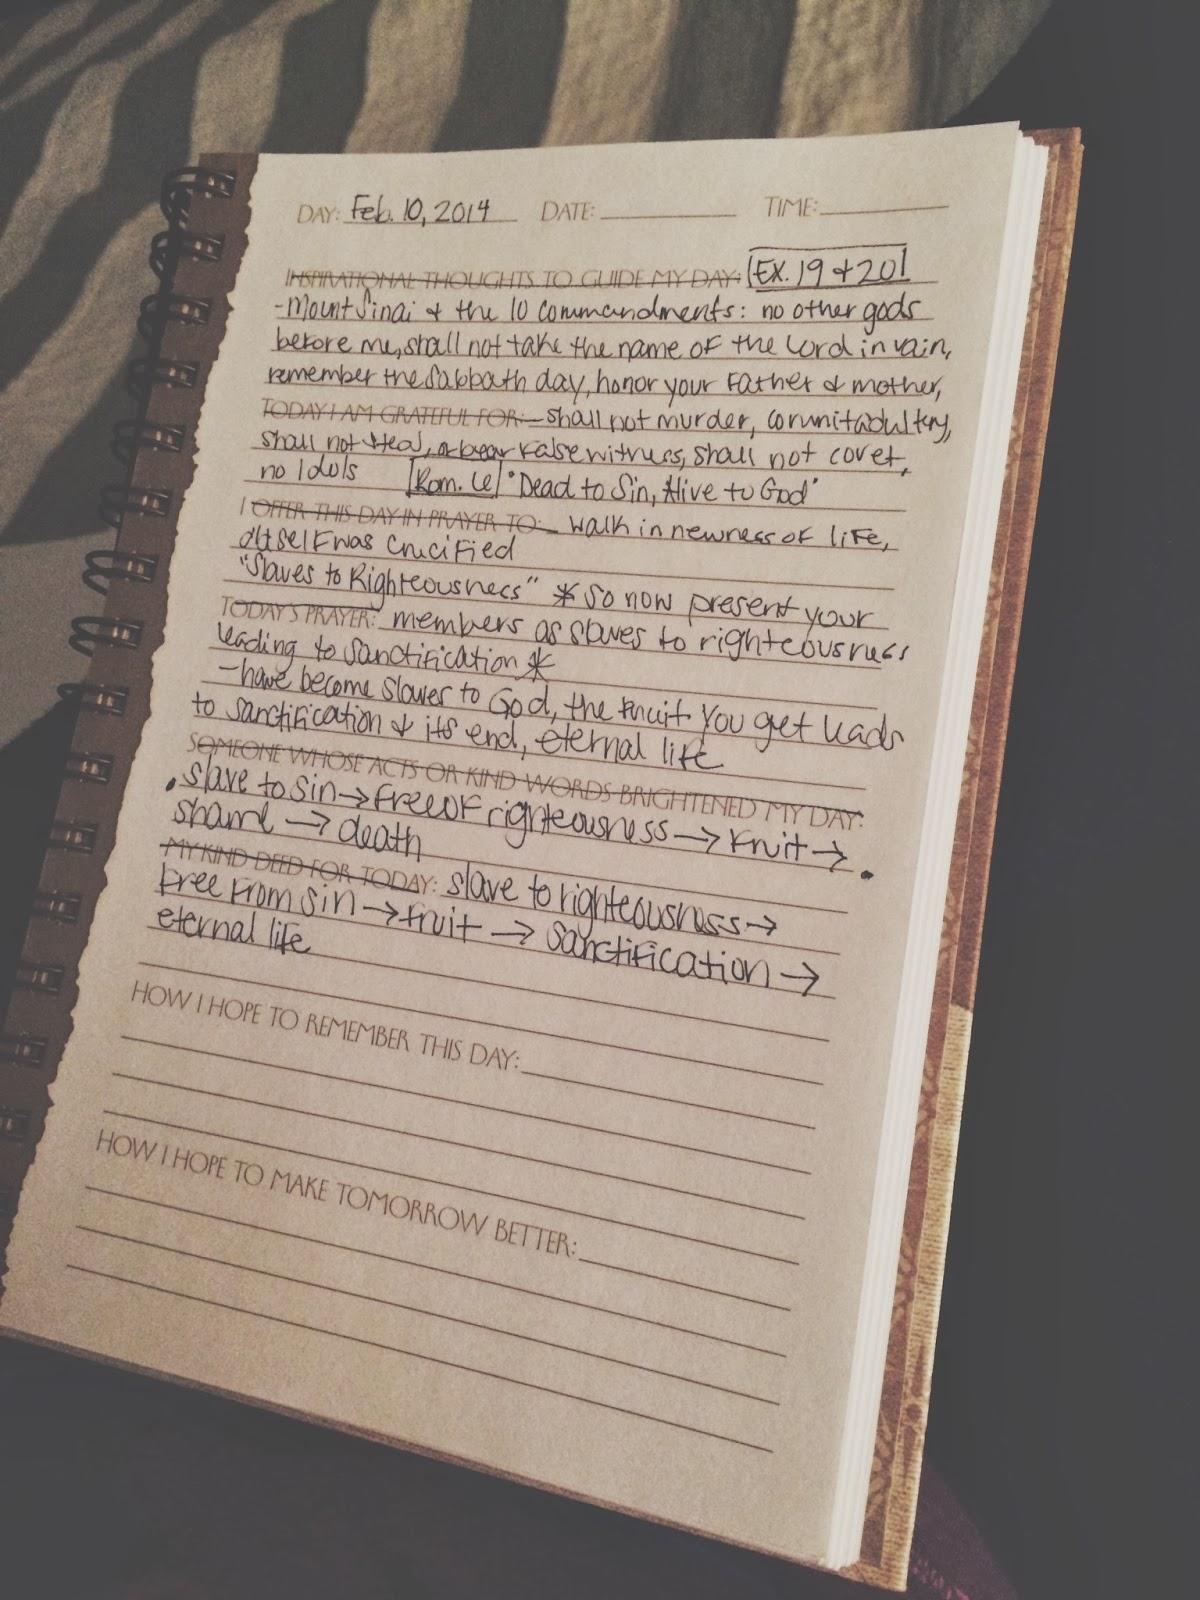 DAY: Feb. 10, 2014 DATE: TIME:
INSPIRATIONAL THOUGHTS TO GUIDE MY DAY: Ex. 19 & 20
-Mount Sinai & the 10 commandments: no other gods
before me, shall not take the name of the Lord in vain,
remember the Sabbath day, honor your Father & mother,
TODAY I AM GRATEFUL FOR: - shall not murder, commit adultery,
shall not steal, or bear false witness, shall not covet,
no Idols Rom. 6 "Dead to Sin, Alive to God"
I OFFER THIS DAY IN PRAYER TO: walk in newness of life,
old self was crucified
"Slaves to Righteousness" * so now present your
TODAY'S PRAYER: members as slaves to righteousness
leading to sanctification *
- have become slaves to God, the fruit you get leads
to sanctification & its end, eternal life
SOMEONE WHOSE ACTS OR KIND WORDS BRIGHTENED MY DAY:
• slave to sin → free of righteousness → fruit →
shame → death •
MY KIND DEED FOR TODAY: slave to righteousness →
free from sin → fruit → sanctification →
eternal life
HOW I HOPE TO REMEMBER THIS DAY:
HOW I HOPE TO MAKE TOMORROW BETTER: